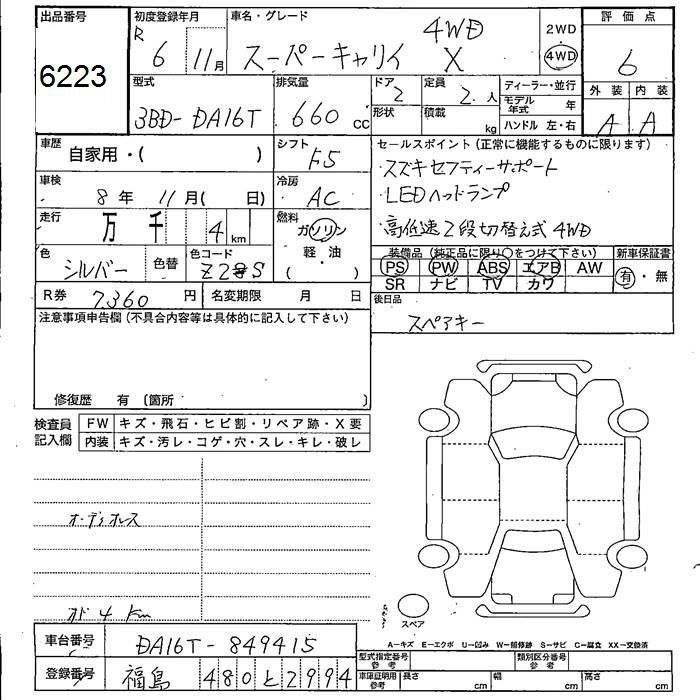 出品番号
6223
初度登録年月
R 6 11月
車名・グレード
スーパーキャリイ 4WD X
2WD
4WD
評価点
6
外装 内装
A A
型式
3BD-DA16T
排気量
660 cc
ドア
2
形状
定員
2 人
積載
kg
ディーラー・並行
モデル年式 年
ハンドル 左・右
車歴
自家用・( )
シフト
F5
車検
8年 11月( 日)
冷房
AC
走行
万 千 4 km
燃料
ガソリン
軽・油
( )
色
シルバー
色替
色コード
Z2S S
R券 7360 円
名変期限 月 日
セールスポイント(正常に機能するものに限ります)
スズキセフティーサポート
LEDヘッドランプ
高低速2段切替え式4WD
装備品(純正品に限り○をつけて下さい)
PS PW ABS エアB AW
SR ナビ TV カワ
新車保証書
有・無
後日品
スペアキー
注意事項申告欄(不具合内容等は具体的に記入して下さい)
修復歴 有〔箇所 〕
検査員記入欄
FW キズ・飛石・ヒビ割・リペア跡・X要
内装 キズ・汚レ・コゲ・穴・スレ・キレ・破レ
オーディオレス
オド4Km
スペア
A=キズ E=エクボ U=凹み W=補修跡 S=サビ C=腐食 XX=交換済
車台番号 DA16T-849415
登録番号 福島 480 と 2994
型式指定番号 参考
類別区分番号 参考
車庫証明用 参考
長さ cm
幅 cm
高さ cm